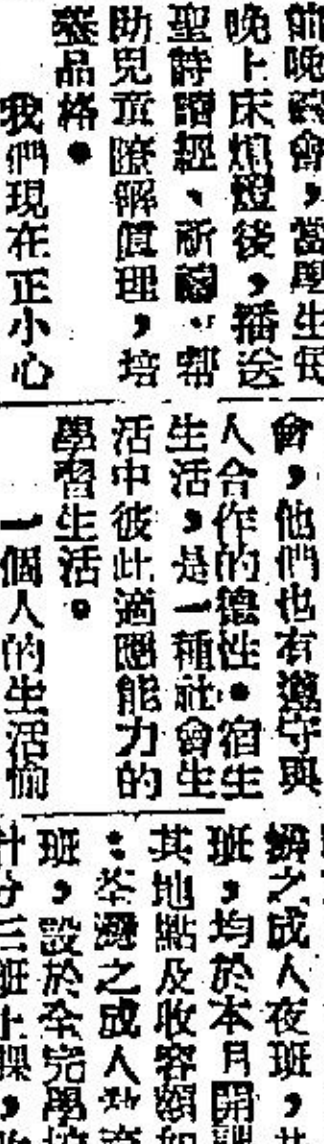 前晚祷會，當學生每
晚上床熄燈後，播送
聖詩讀經、祈禱，幫
助兒童瞭解眞理，培
養品格。
我們現在正小心
會，他們也有遵守與
人合作的德性。宿生
生活，是一種社會生
活中彼此適應能力的
學習生活。
一個人的生活愉
辦之成人夜班，其
班，均於本月開課
其地點及收容額如
：荃灣之成人敎育
班，設於全完學校
計分三班上課，